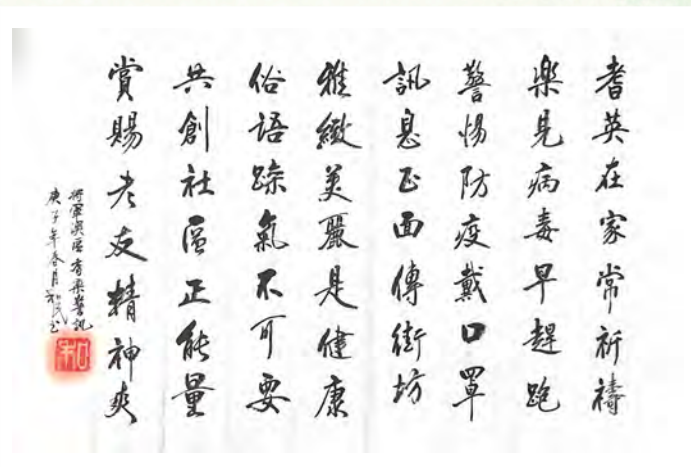 耆英在家常祈禱
樂見病毒早趕跑
警惕防疫戴口罩
訊息正面傳街坊
雅緻美麗是健康
俗語躁氣不可要
共創社區正能量
賞賜老友精神爽
將軍澳區耆樂警訊
庚子年春月和民書
和